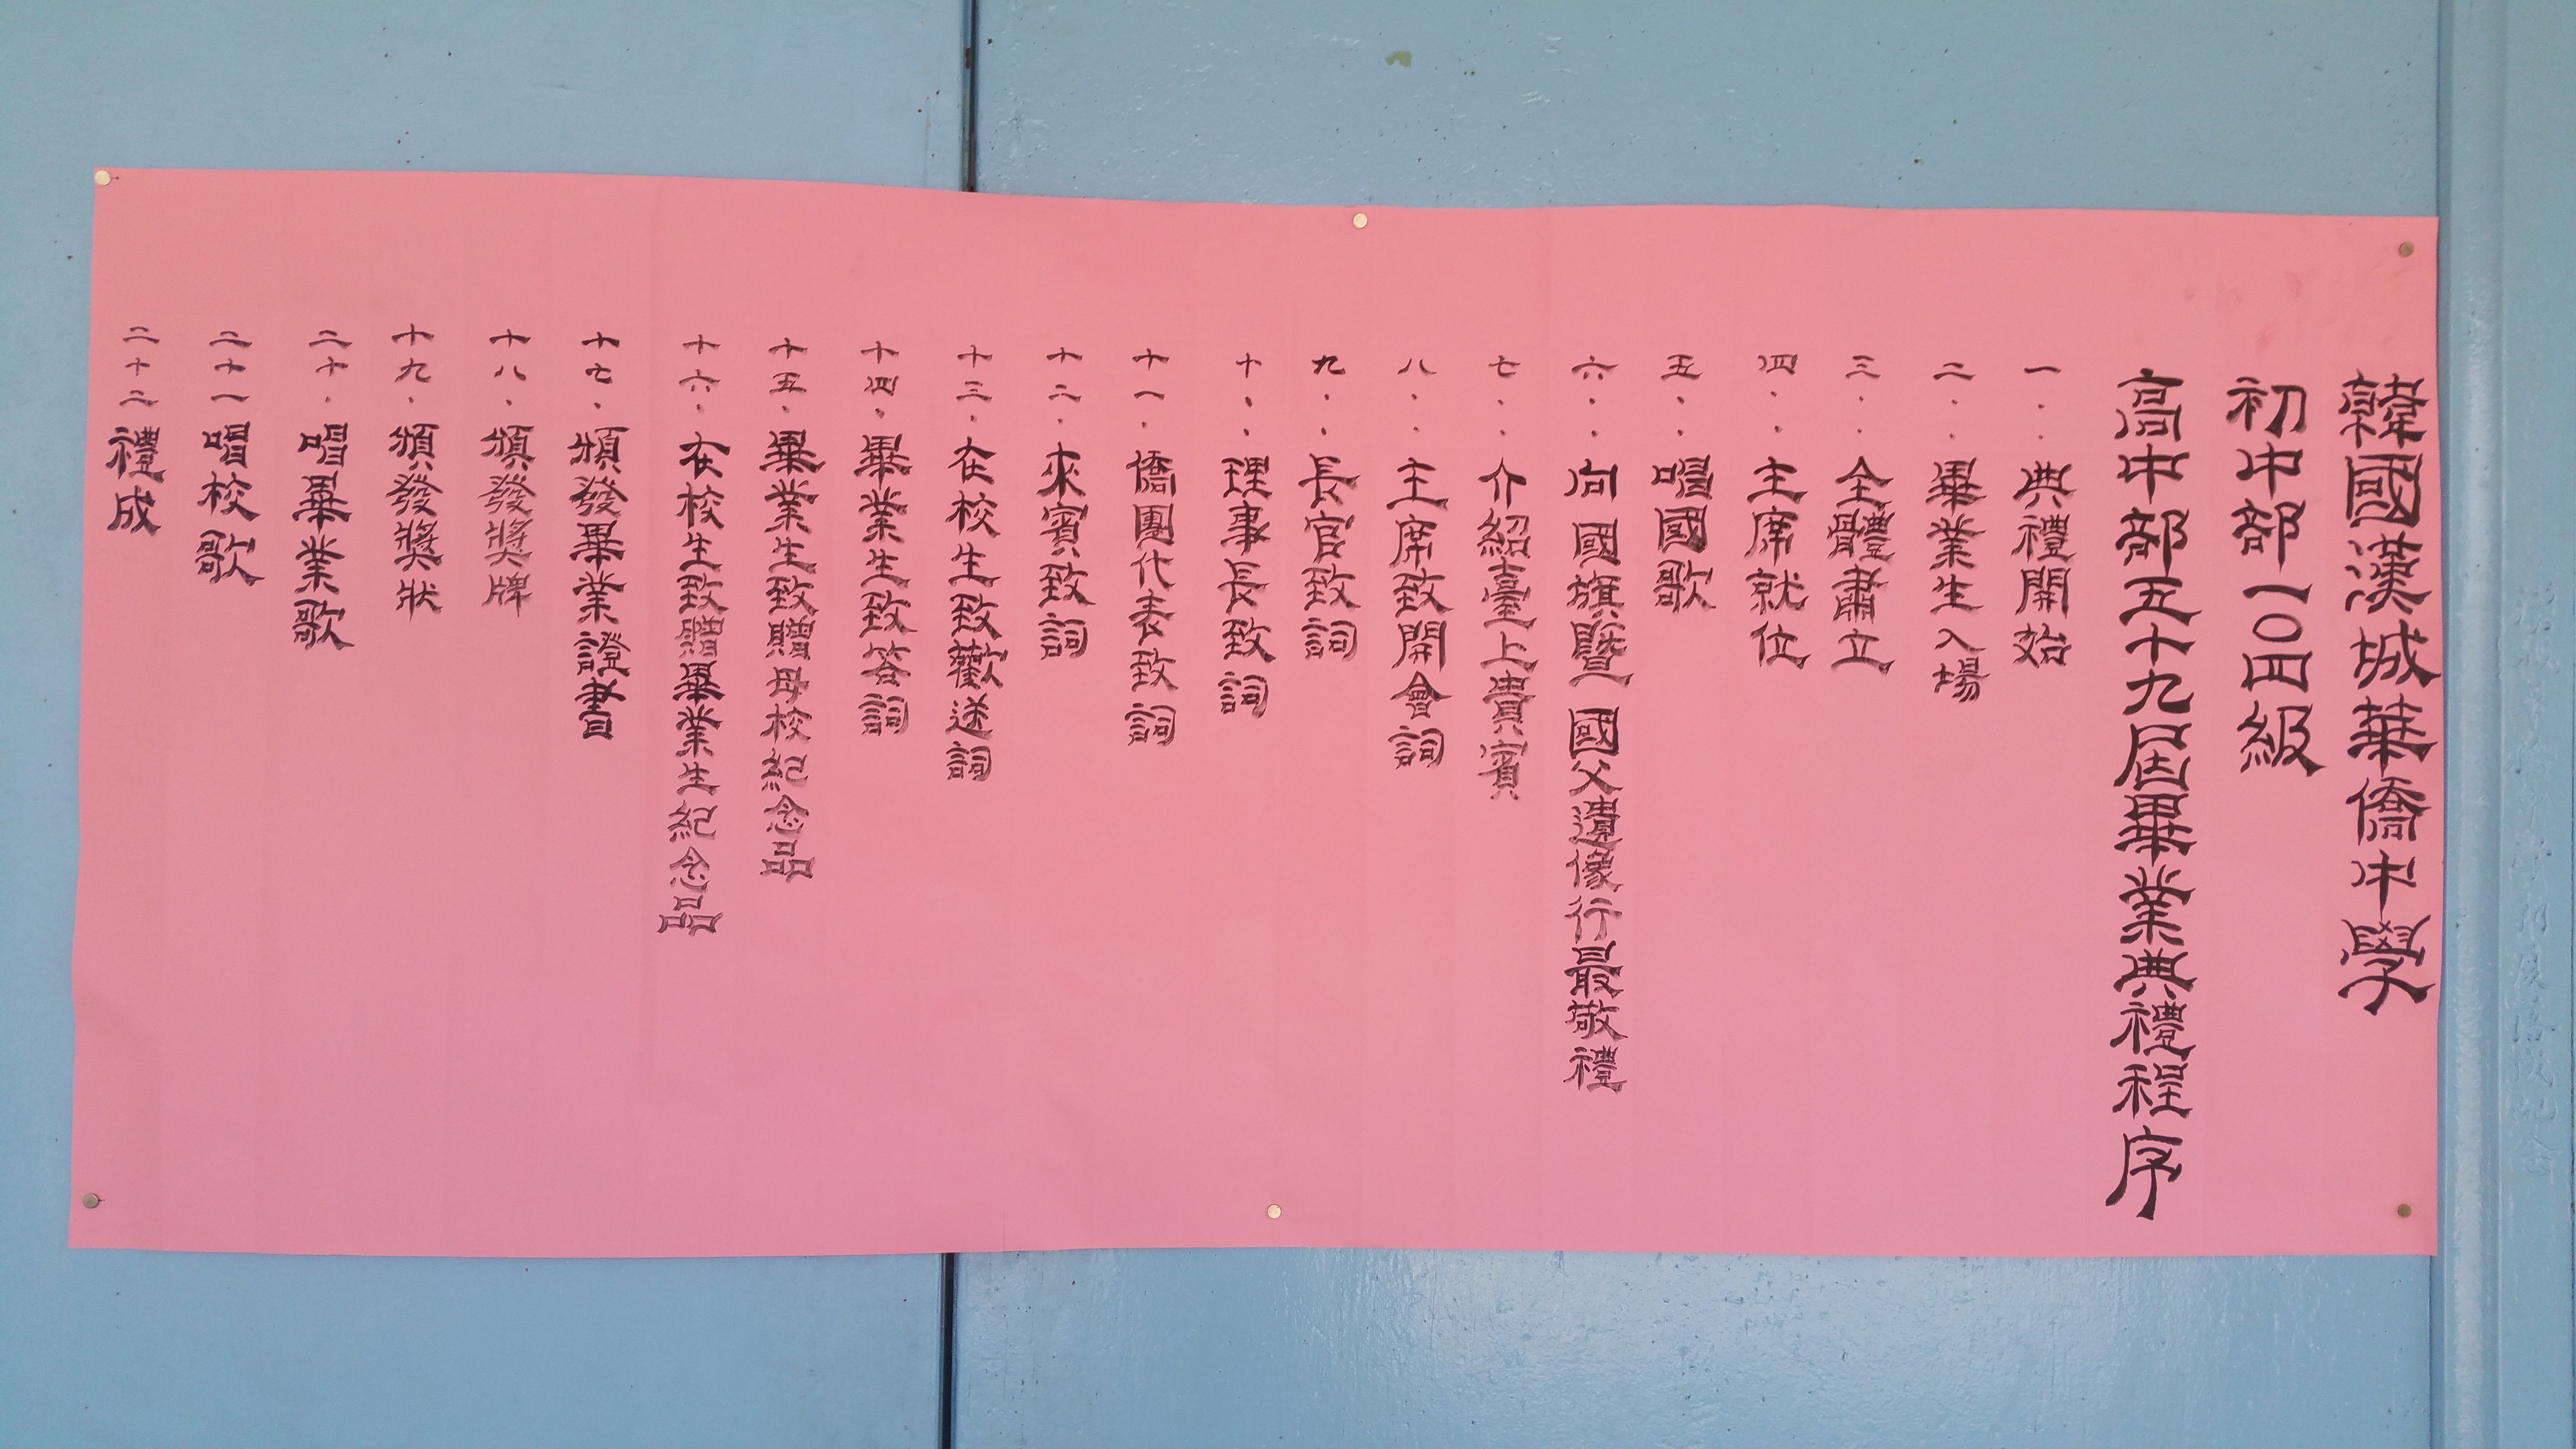 韓國漢城華僑中學
初中部一〇四級
高中部五十九屆畢業典禮程序
一．．典禮開始
二．．畢業生入場
三．．全體肅立
四．．主席就位
五．．唱國歌
六．．向國旗暨國父遺像行最敬禮
七．．介紹臺上貴賓
八．．主席致開會詞
九．．長官致詞
十．．理事長致詞
十一．僑團代表致詞
十二．來賓致詞
十三．在校生致歡送詞
十四．畢業生致答詞
十五．畢業生致贈母校紀念品
十六．在校生致贈畢業生紀念品
十七．頒發畢業證書
十八．頒發獎牌
十九．頒發獎狀
二十．唱畢業歌
二十一唱校歌
二十二禮成